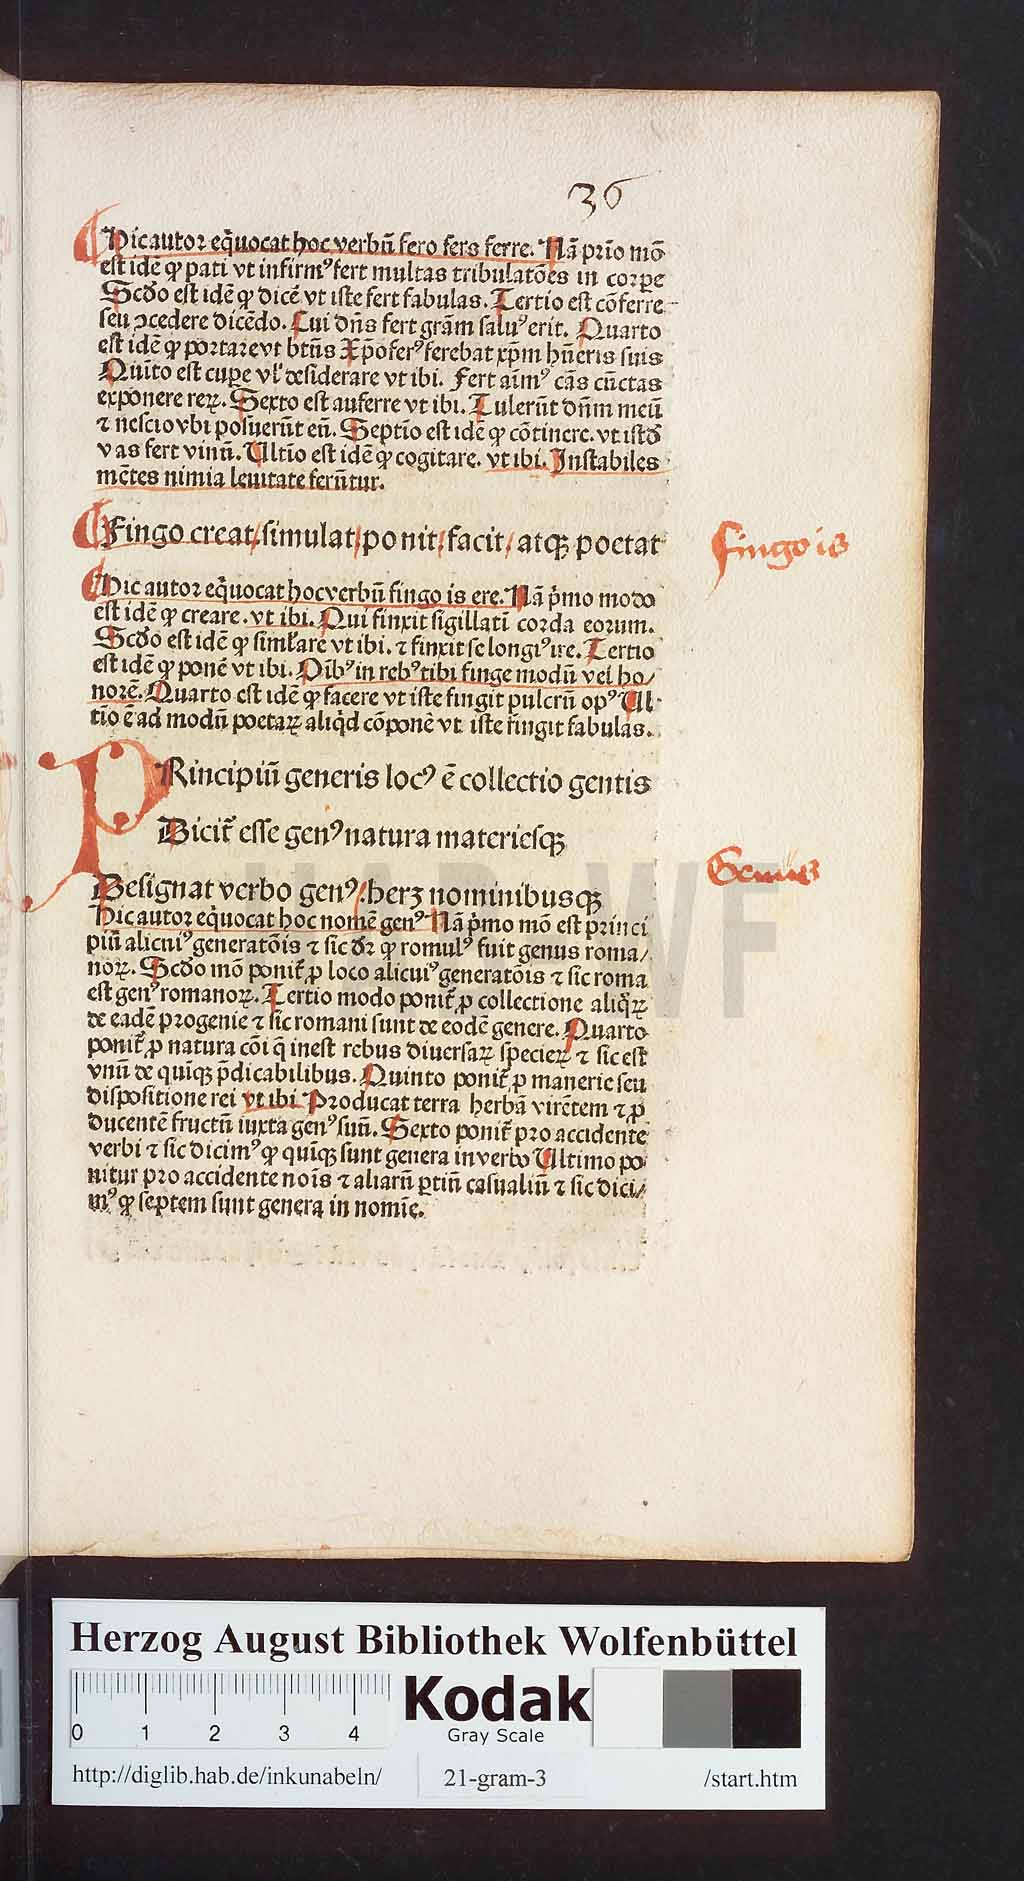 36
Hic autor eq̄uocat hoc verbū fero fers ferre. Nā prīo mō
est idē ꝙ pati vt infirmꝰ fert multas tribulatōes in corpe
Scďo est idē ꝙ dicē vt iste fert fabulas. Tertio est cōferre
seu ↄcedere dicēdo. Cui dn̄s fert grām saluꝰ erit. Quarto
est idē ꝙ portare vt btn̄s Xp̄oferꝰ ferebat xp̄m hn̄eris suis
Quīto est cupe vl' desiderare vt ibi. Fert aīmꝰ cās cūctas
exponere reꝝ. Sexto est auferre vt ibi. Tulerūt dn̄m meū
⁊ nescio vbi posuerūt eū. Septīo est idē ꝙ cōtinere. vt istď
vas fert vinū. Ultīo est idē ꝙ cogitare. vt ibi. Instabiles
mētes nimia leuitate ferūtur.
Fingo creat/ simulat/ ponit/ facit/ atqꝫ poetat
fingo is
Hic autor eq̄uocat hoc verbū fingo is ere. Nā p̄mo modo
est idē ꝙ creare. vt ibi. Qui finxit sigillatī corda eorum.
Scďo est idē ꝙ siml̄are vt ibi. ⁊ finxit se longiꝰ ire. Tertio
est idē ꝙ ponē vt ibi. Oībꝰ in rebꝰ tibi finge modū vel ho/
norē. Quarto est idē ꝙ facere vt iste fingit pulcrū opꝰ Ul
tīo ē ad modū poetaꝝ aliq̄d cōponē vt iste fingit fabulas.
PRincipiū generis locꝰ ē collectio gentis
Dicit̄ esse genꝰ natura materiesqꝫ
Genus
Designat verbo genꝰ/ herꝫ nominibusqꝫ
Hic autor eq̄uocat hoc nomē genꝰ Nā p̄mo mō est princi
piū alicuiꝰ generatōis ⁊ sic dr̄ ꝙ romulꝰ fuit genus roma/
noꝝ. Scďo mō ponit̄ ꝓ loco alicuiꝰ generatōis ⁊ sic roma
est genꝰ romanoꝝ. Tertio modo ponit̄ ꝓ collectione aliq̄ꝝ
de eadē progenie ⁊ sic romani sunt de eodē genere. Quarto
ponit̄ ꝓ natura cōi q̄ inest rebus diuersaꝝ specieꝝ ⁊ sic est
vnū de quīqꝫ p̄dicabilibus. Quinto ponit̄ ꝓ manerie seu
dispositione rei vt ibi Producat terra herbā virētem ⁊ ꝓ
ducentē fructū iuxta genꝰ suū. Sexto ponit̄ pro accidente
verbi ⁊ sic dicimꝰ ꝙ quīqꝫ sunt genera in verbo Ultimo po
nitur pro accidente noīs ⁊ aliarū ꝑtiū casualiū ⁊ sic dici/
mꝰ ꝙ septem sunt genera in nomīe.
HAB WF
Herzog August Bibliothek Wolfenbüttel
0 1 2 3 4
Kodak
Gray Scale
http://diglib.hab.de/inkunabeln/ 21-gram-3 /start.htm